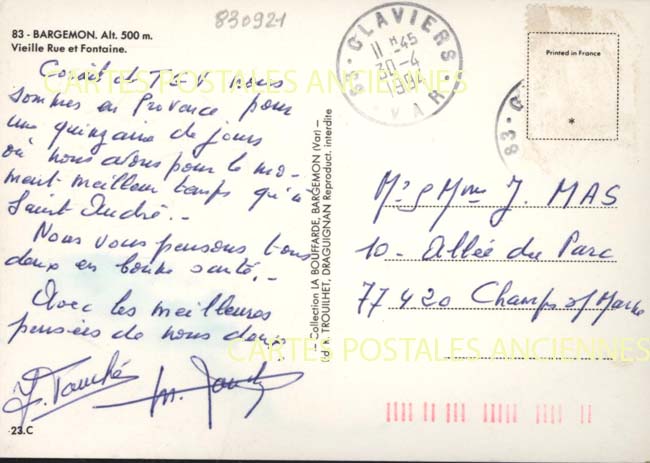 830921
83 - BARGEMON. Alt. 500 m.
Vieille Rue et Fontaine.
T.G.V. nous
sommes en Provence pour
une quinzaine de jours
où nous avons pour le mo-
ment meilleur temps qu'à
Saint André. -
Nous vous pensons tous
deux en bonne santé. -
Avec les meilleures
pensées de nous deux
23.C
— Collection LA BOUFFARDE, BARGEMON (Var) —
Ed. H. TROUILHET, DRAGUIGNAN Reproduct. interdite
83 - CLAVIERS
11 H 45
30-4
VAR
83 - C
Printed in France
*
Mr & Mme J. MAS
10 - Allée du Parc
77420 Champs s/ Marne
CARTES POSTALES ANCIENNES
CARTES POSTALES ANCIENNES